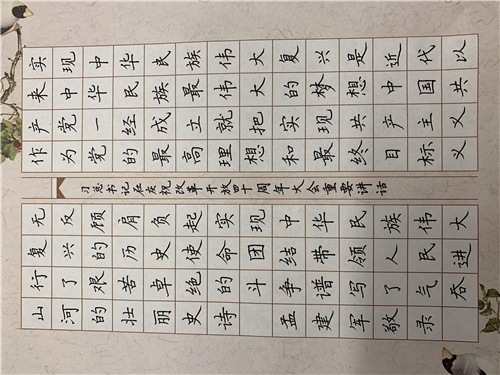 实现中华民族伟大复兴是近代以
来中华民族最伟大的梦想中国共
产党一经成立就把实现共产主义
作为党的最高理想和最终目标义
习总书记在庆祝改革开放四十周年大会重要讲话
无反顾肩负起实现中华民族伟大
复兴的历史使命团结带领人民进
行了艰苦卓绝的斗争谱写了气吞
山河的壮丽史诗 孟建军敬录